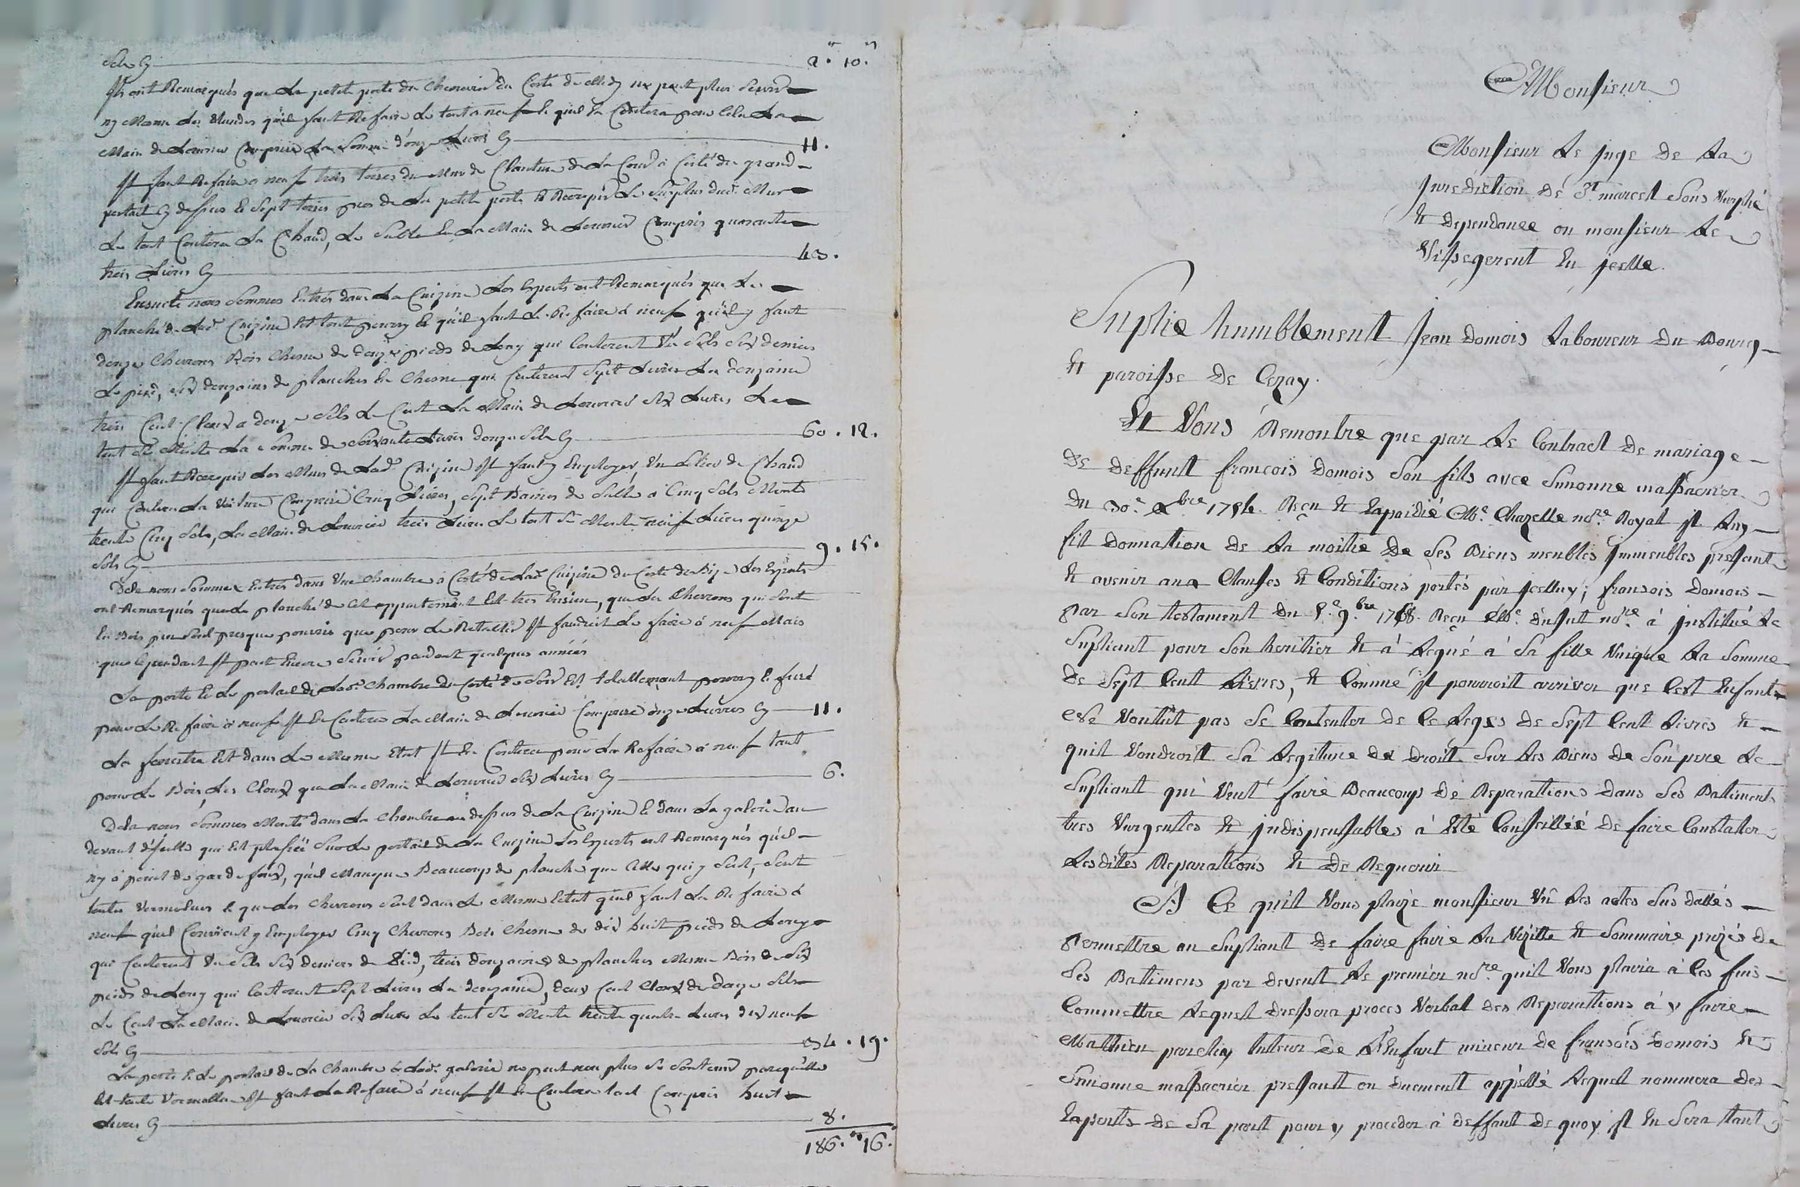 Sols Cy 2 . 10 .
Ils ont Remarqués que la petite porte du Chenevier du Costé de midy ne peut plus Servir
ny mesme les qu'il faut Refaire le tout a neuf le quel Coutera pour cela la
Main de Louvrier Comprise La Somme d'onze Livres Cy 11 .
Il faut Refaire a neuf trois toises du Mur de Cloture de la Cour à Costé du grand
portail Cy dessus et Sept toises pres de la petite porte et Recrepir le Surplus dud. Mur
le tout Coutera La Chaud, le Sable et La Main de Louvrier Compris quarante
trois Livres Cy 43 .
Ensuite nous Sommes Entrés dans La Cuizine Les Experts ont Remarqués que le
planché de lade Cuizine est tout pourry et qu'il faut le Refaire à neuf qu'il y faut
douze Chevrons Bois Chesne de douze pieds de Long qui Couteront Un Sols Six deniers
le pied, six douzaines de planches de Chesne qui Couteront Sept Livres La douzaine
trois Cent Cloux a douze Sols le Cent La Main de Louvrier six Livres le
tout se Monte La Somme de Soixante Livres douze Sols Cy 60 . 12 .
Il faut Recrepir les Murs de Lade Cuizine Il faut y Employer Un Poinçon de Chaud
qui Coutera La Voiture Comprise Cinq Livres, Sept Barriers de Sable à Cinq Sols Monte
trente Cinq Sols, La Main de Louvrier trois Livres le tout Se Monte neuf Livres quinze
Sols Cy 9 . 15 .
Dela nous Sommes Entrés dans Une Chambre à Costé de Lade Cuizine du Costé de Bize Les Experts
ont Remarqués que le planché de Cet appartement Est tres Ensien, que les Chevrons qui Sont
En Bois presque pourris que pour le Rettablir Il faudroit le faire à neuf Mais
que Cependant Il peut Encore Servir pendant quelques années
La porte Et le portail de Lade Chambre du Costé de Soir Est totallement pourry Et
pour le Refaire à neuf Il En Coutera La Main de Louvrier Comprise onze Livres Cy 11 .
La fenestre Est dans le Mesme Etat Il En Coutera pour La Refaire à neuf tant
pour le Bois, les Cloux que La Main de Louvrier Six Livres Cy 6 .
Dela nous Sommes Monté dans La Chambre au dessus de La Cuizine Et dans La galerie au
devant d'icelle qui Est placée Sur le portail de La Cuizine Les Experts ont Remarqués qu'il
ny à point de garde foux, qu'il Manque Beaucoup de planche que Celle qui y Sont, Sont
toutes Vermolues Et que Les Chevrons Sont dans Le Mesme Etat qu'il faut La Refaire à
neuf qu'il Convient y Employer Cinq Chevrons Bois Chesne de dix huit pieds de Long
qui Couteront Un Sols Six deniers le Pied, trois douzaines de planches Mesme Bois de Six
pieds de Long qui Couteront Sept Livres La douzaine, deux Cent Cloux de douze Sols
Le Cent La Main de Louvrier Six Livres Le tout Se Monte trente quatre Livres dix neuf
Sols Cy 34 . 19 .
La porte Et Le portail de La Chambre à Lade galerie ne peut non plus Se Soutenir parcequ'elle
Est toute Vermollue Il faut La Refaire à neuf Il En Coutera tout Compris huit
Livres Cy 8 .
186 . 16 .
Monsieur
Monsieur Le Juge de La
Jurediction de St. marcel Sous Urphé
Et dependance ou monsieur Le
Visgerent En Jcelle.
Suplie humblement Jean Domois Laboureur du Bourg
Et paroisse de Cezay.
Et Vous Remontre que par Le Contract de mariage
de deffunt francois Domois Son fils avec Simonne massacrier
du 30e. Xbre 1754. Reçu Et Expaidié Me. Chazelle nore. Royal Il Luy
fit Donnattion de La moitié de Ses Biens meubles Jmmeubles present
Et avenir aux Clauses Et Conditions portés par Jcelluy; francois Domois
par Son testament du 8e 9bre 1768. Reçu Me. nore. à Jnstitué Le
Supliant pour Son heritier Et à Legué à Sa fille Unique La Somme
De Sept Cent Livres, Et Comme Il pourroitt arriver que Cest Enfant
Ne Voulut pas Se Contenter de Ce Legs de Sept Cent Livres Et
quil Voudroitt Sa Legitime de Droit Sur Les Biens de Son pere Le
Supliant qui Veut faire Beaucoup de Reparattions Dans Ses Battiments
tres Vurgentes Et Jndispensables à Eté Conseillée De faire Constater
Lesdites Reparattions Et De Requerir
A Ce qu'il Vous plaize monsieur Vû Les actes Sus dattés
permettre au Supliant de faire faire La Vizitte Et Sommaire prizés de
Ses Battimens par devent Le premier nore. quil Vous plaira à Ces fins
Commettre Lequel dressera proces Verbal des Reparattions à y faire
Matthieu tuteur de L'Enfant mineur de francois Domois Et
Simonne massacrier presant ou duement appellé Lequel nommera des
Experts de Sa part pour y proceder à deffaut de quoy Il En Sera tant